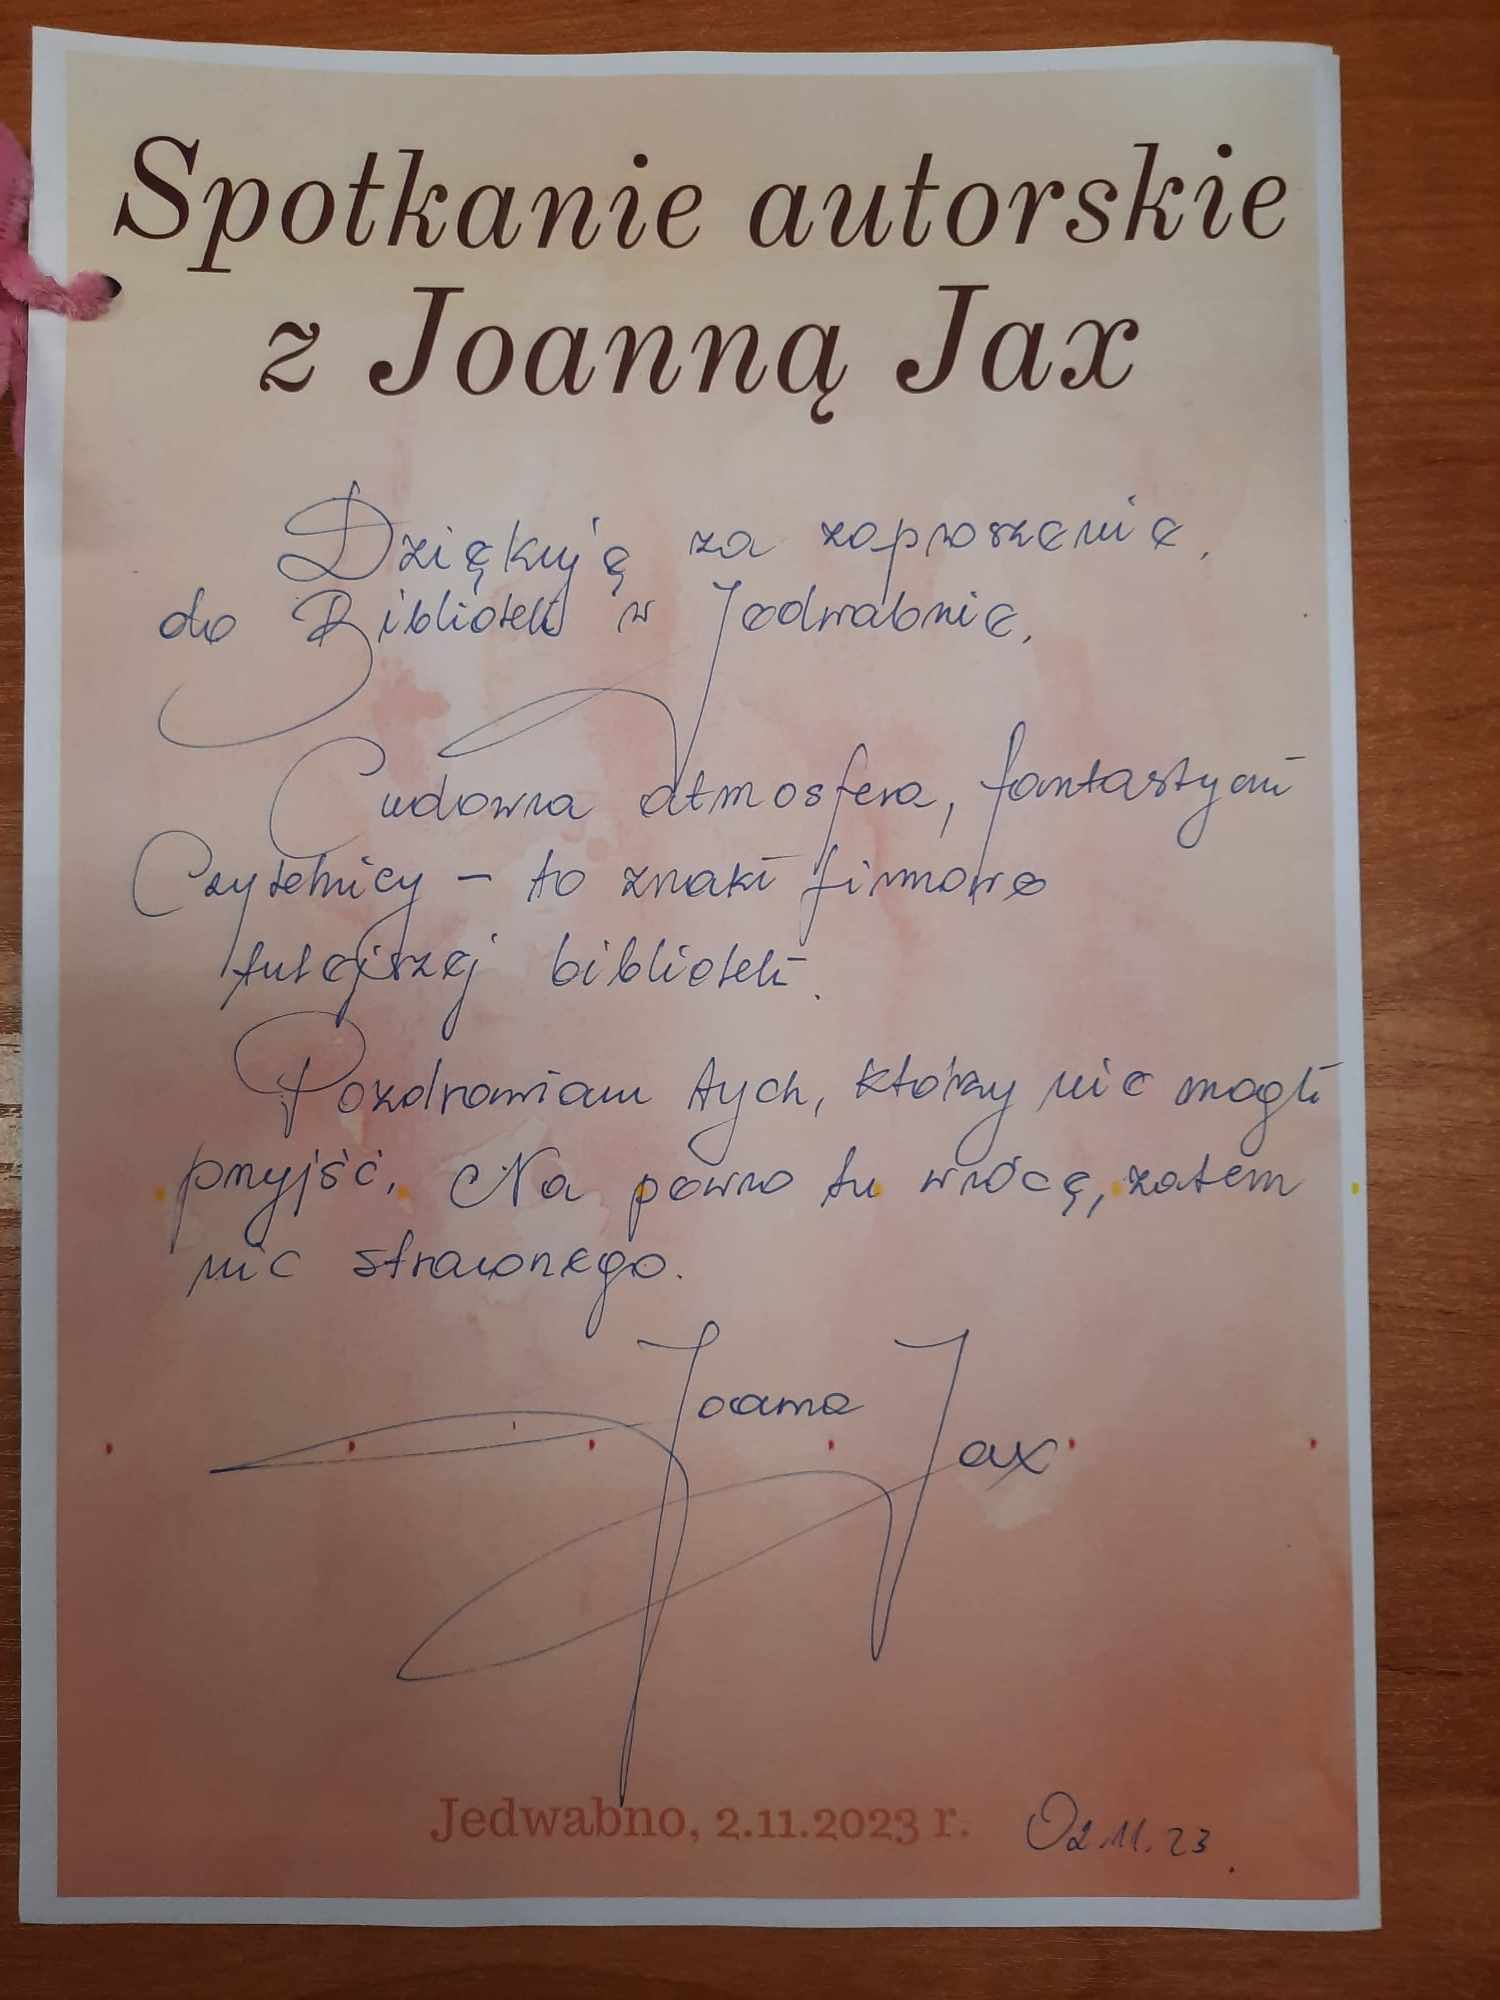 Spotkanie autorskie
z Joanną Jax
Dziękuję za zaproszenie,
do Biblioteki w Jedwabnie.
Cudowna atmosfera, fantastyczni
Czytelnicy – to znaki firmowe
tutejszej biblioteki.
Pozdrawiam tych, którzy nie mogli
przyjść. Na pewno tu wrócę, zatem
nic straconego.
Joanna
Jax
Jedwabno, 2.11.2023 r.
02.11.23